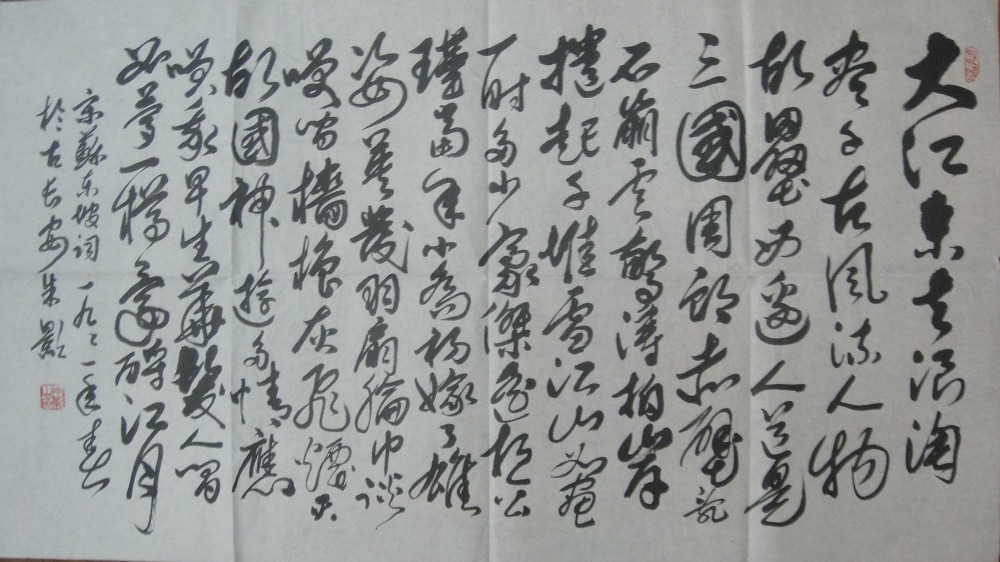 大江東去浪淘
尽千古風流人物
故壘西邊人道是
三國周郎赤壁乱
石崩雲驚濤拍岸
捲起千堆雪江山如畫
一时多少豪傑遥想公
瑾當年小喬初嫁了雄
姿英發羽扇綸巾談
咲间檣櫓灰飛煙灭
故國神遊多情應
咲我早生華髮人间
如夢一樽還酹江月
蘇東坡詞一九九一年春
於古长安朱